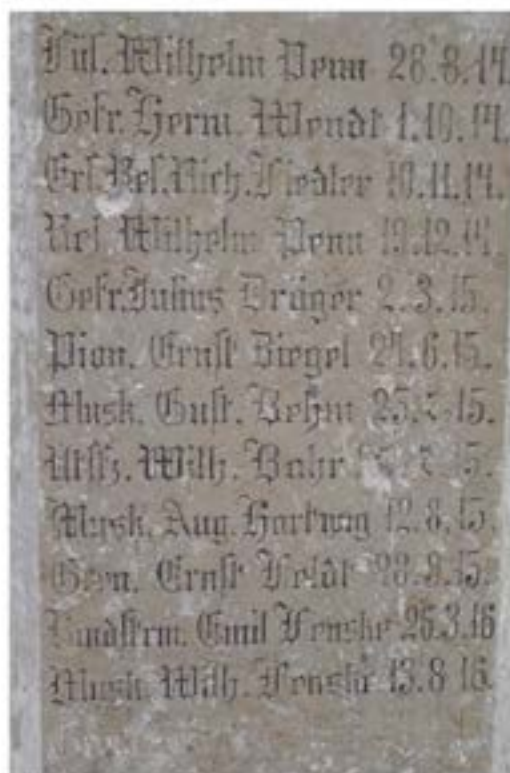 Füs. Wilhelm Venn 28.8.14.
Gefr. Herm. Wendt 1.10.14.
Ers. Res. Rich. Fiedler 10.11.14.
Res. Wilhelm Venn 19.12.14.
Gefr. Julius Dräger 2.3.15.
Pion. Ernst Ziegel 24.6.15.
Musk. Gust. Behm 15.
Utffz. Wilh. Bahr 15.
Musk. Aug. Hartwig 12.8.15.
Gren. Ernst Veldt 15.
Landstrm. Emil Venske 26.3.16
Musk. Wilh. Venske 13.8.16.